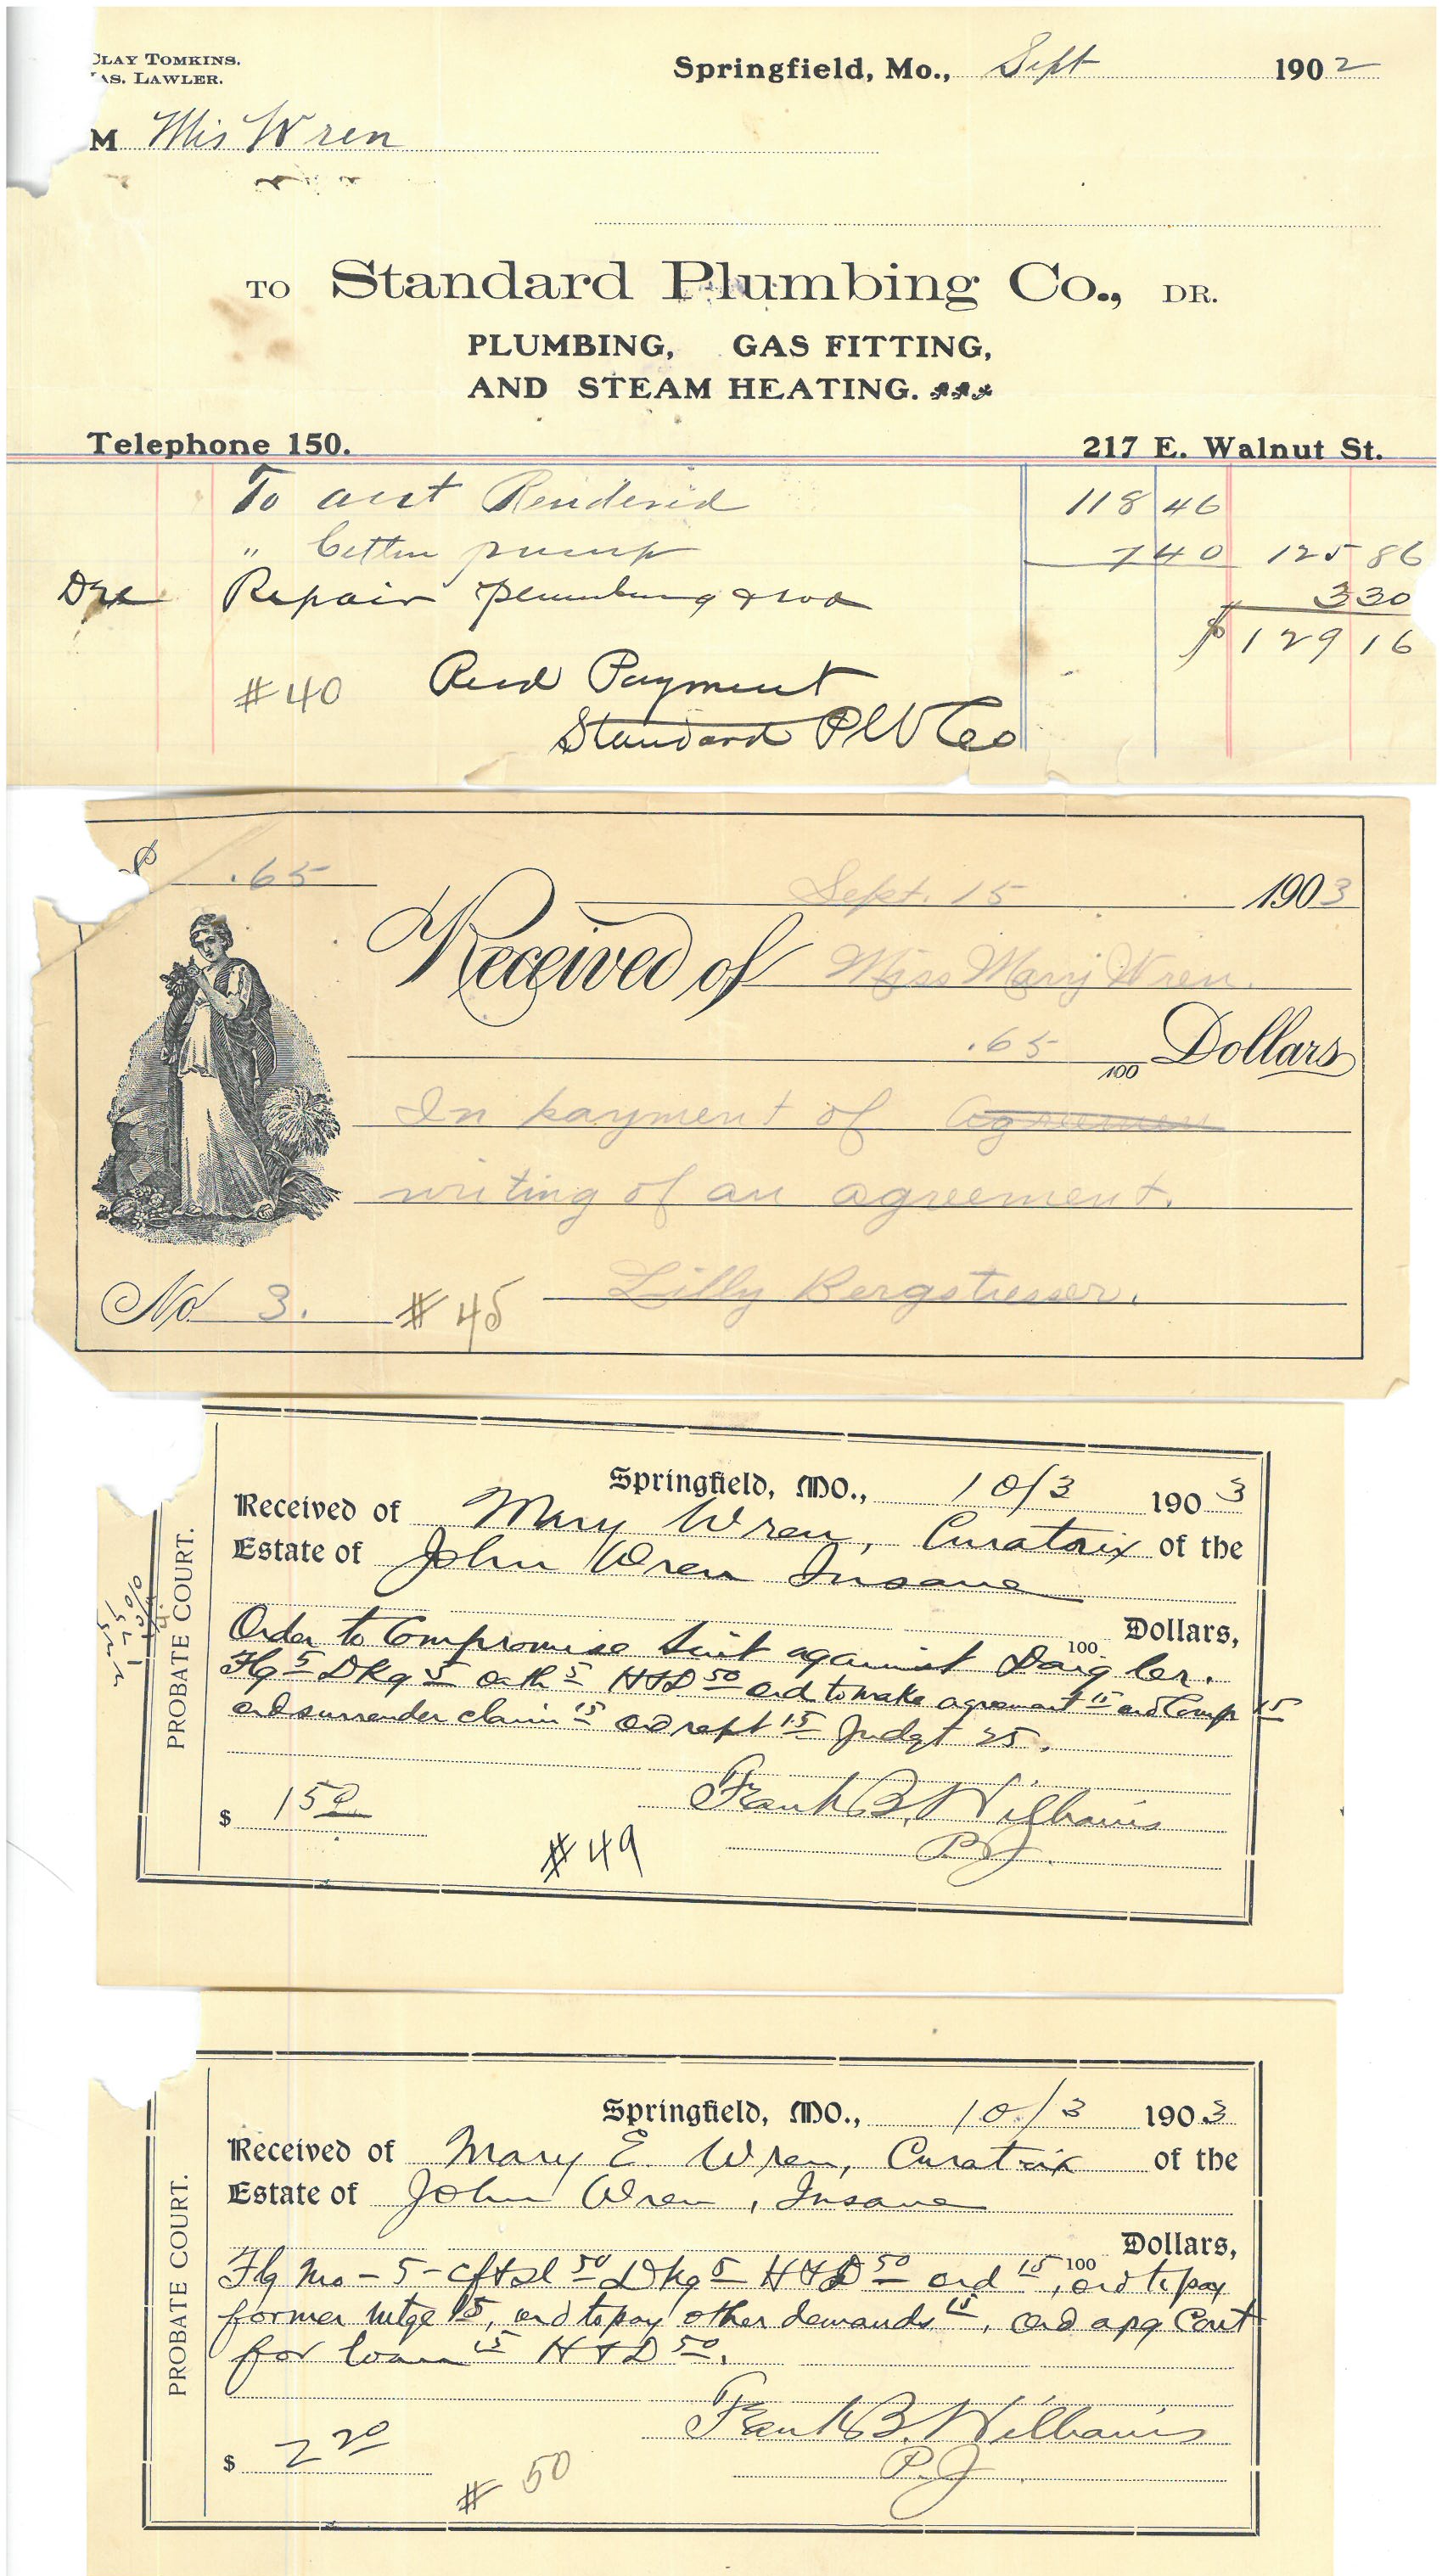 CLAY TOMKINS.
AS. LAWLER.
Springfield, Mo., Sept 1902
M Mis Wren
TO Standard Plumbing Co., DR.
PLUMBING, GAS FITTING,
AND STEAM HEATING.
Telephone 150. 217 E. Walnut St.
To acct Rendered 118 46
" Cettern pump 7 40 125 86
Dec Repair plumbing & rod 3 30
$ 129 16
#40 Recd Payment
Standard Plb Co
$ .65
Sept. 15 1903
Received of Miss Mary Wren.
.65 100 Dollars
In payment of agreemen
writing of an agreement.
No 3. #45 Lilly Bergstresser.
PROBATE COURT.
Springfield, MO., 10/3 1903
Received of Mary Wren, Curatrix of the
Estate of John Wren Insane
100 Dollars,
Order to Compromise Suit against Daigler.
Flg 5 Dkg 5 oath 5 H&D 50 ord to make agreement 15 ord Comp 15
ord surrender claim 15 ord rept 15 Judgt 25.
$ 1 50 Frank B. Williams
#49 P.J.
PROBATE COURT.
Springfield, MO., 10/3 1903
Received of Mary E. Wren, Curatrix of the
Estate of John Wren, Insane
100 Dollars,
Flg Mo - 5 - cft & sl 50 Dkg 5 H&D 50 ord 15, ord to pay
former mtge 15, ord to pay other demands 15, ord apg Cont
for loan 15 H&D 50.
$ 2 20 Frank B. Williams
#50 P.J.